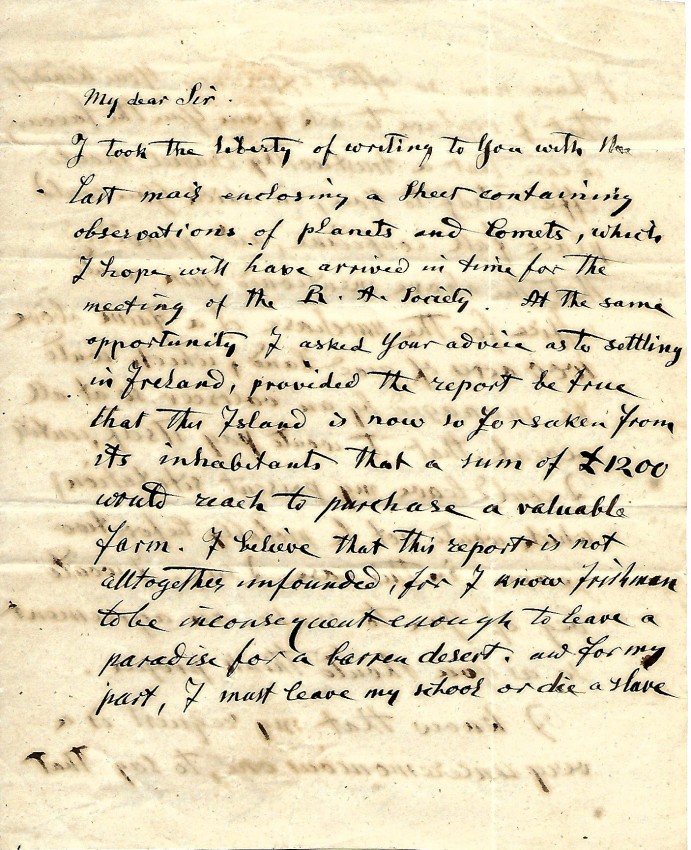 My dear Sir.
I took the liberty of writing to You with the
last mail enclosing a Sheet containing
observations of planets and Comets, which
I hope will have arrived in time for the
meeting of the R. A. Society. At the same
opportunity I asked Your advice as to settling
in Ireland, provided the report be true
that this Island is now so forsaken from
its inhabitants that a sum of £1200
would reach to purchase a valuable
farm. I believe that this report is not
alltogether unfounded, for I know Irishmen
to be inconsequent enough to leave a
paradise for a barren desert. and for my
part, I must leave my school or die a slave